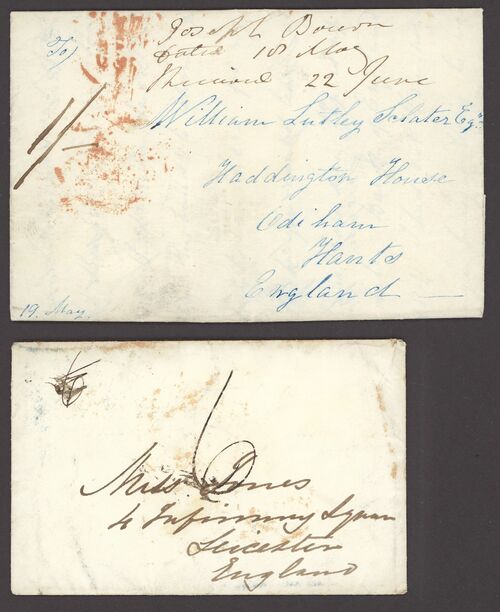 Joseph Bown
Dated 18 May
Received 22 June
To,
1/-
William Lutley Sclater Esqr
Haddington House
Odiham
Hants
England
19. May.
6
Miss Jones
4 Infirmary Square
Leicester
England